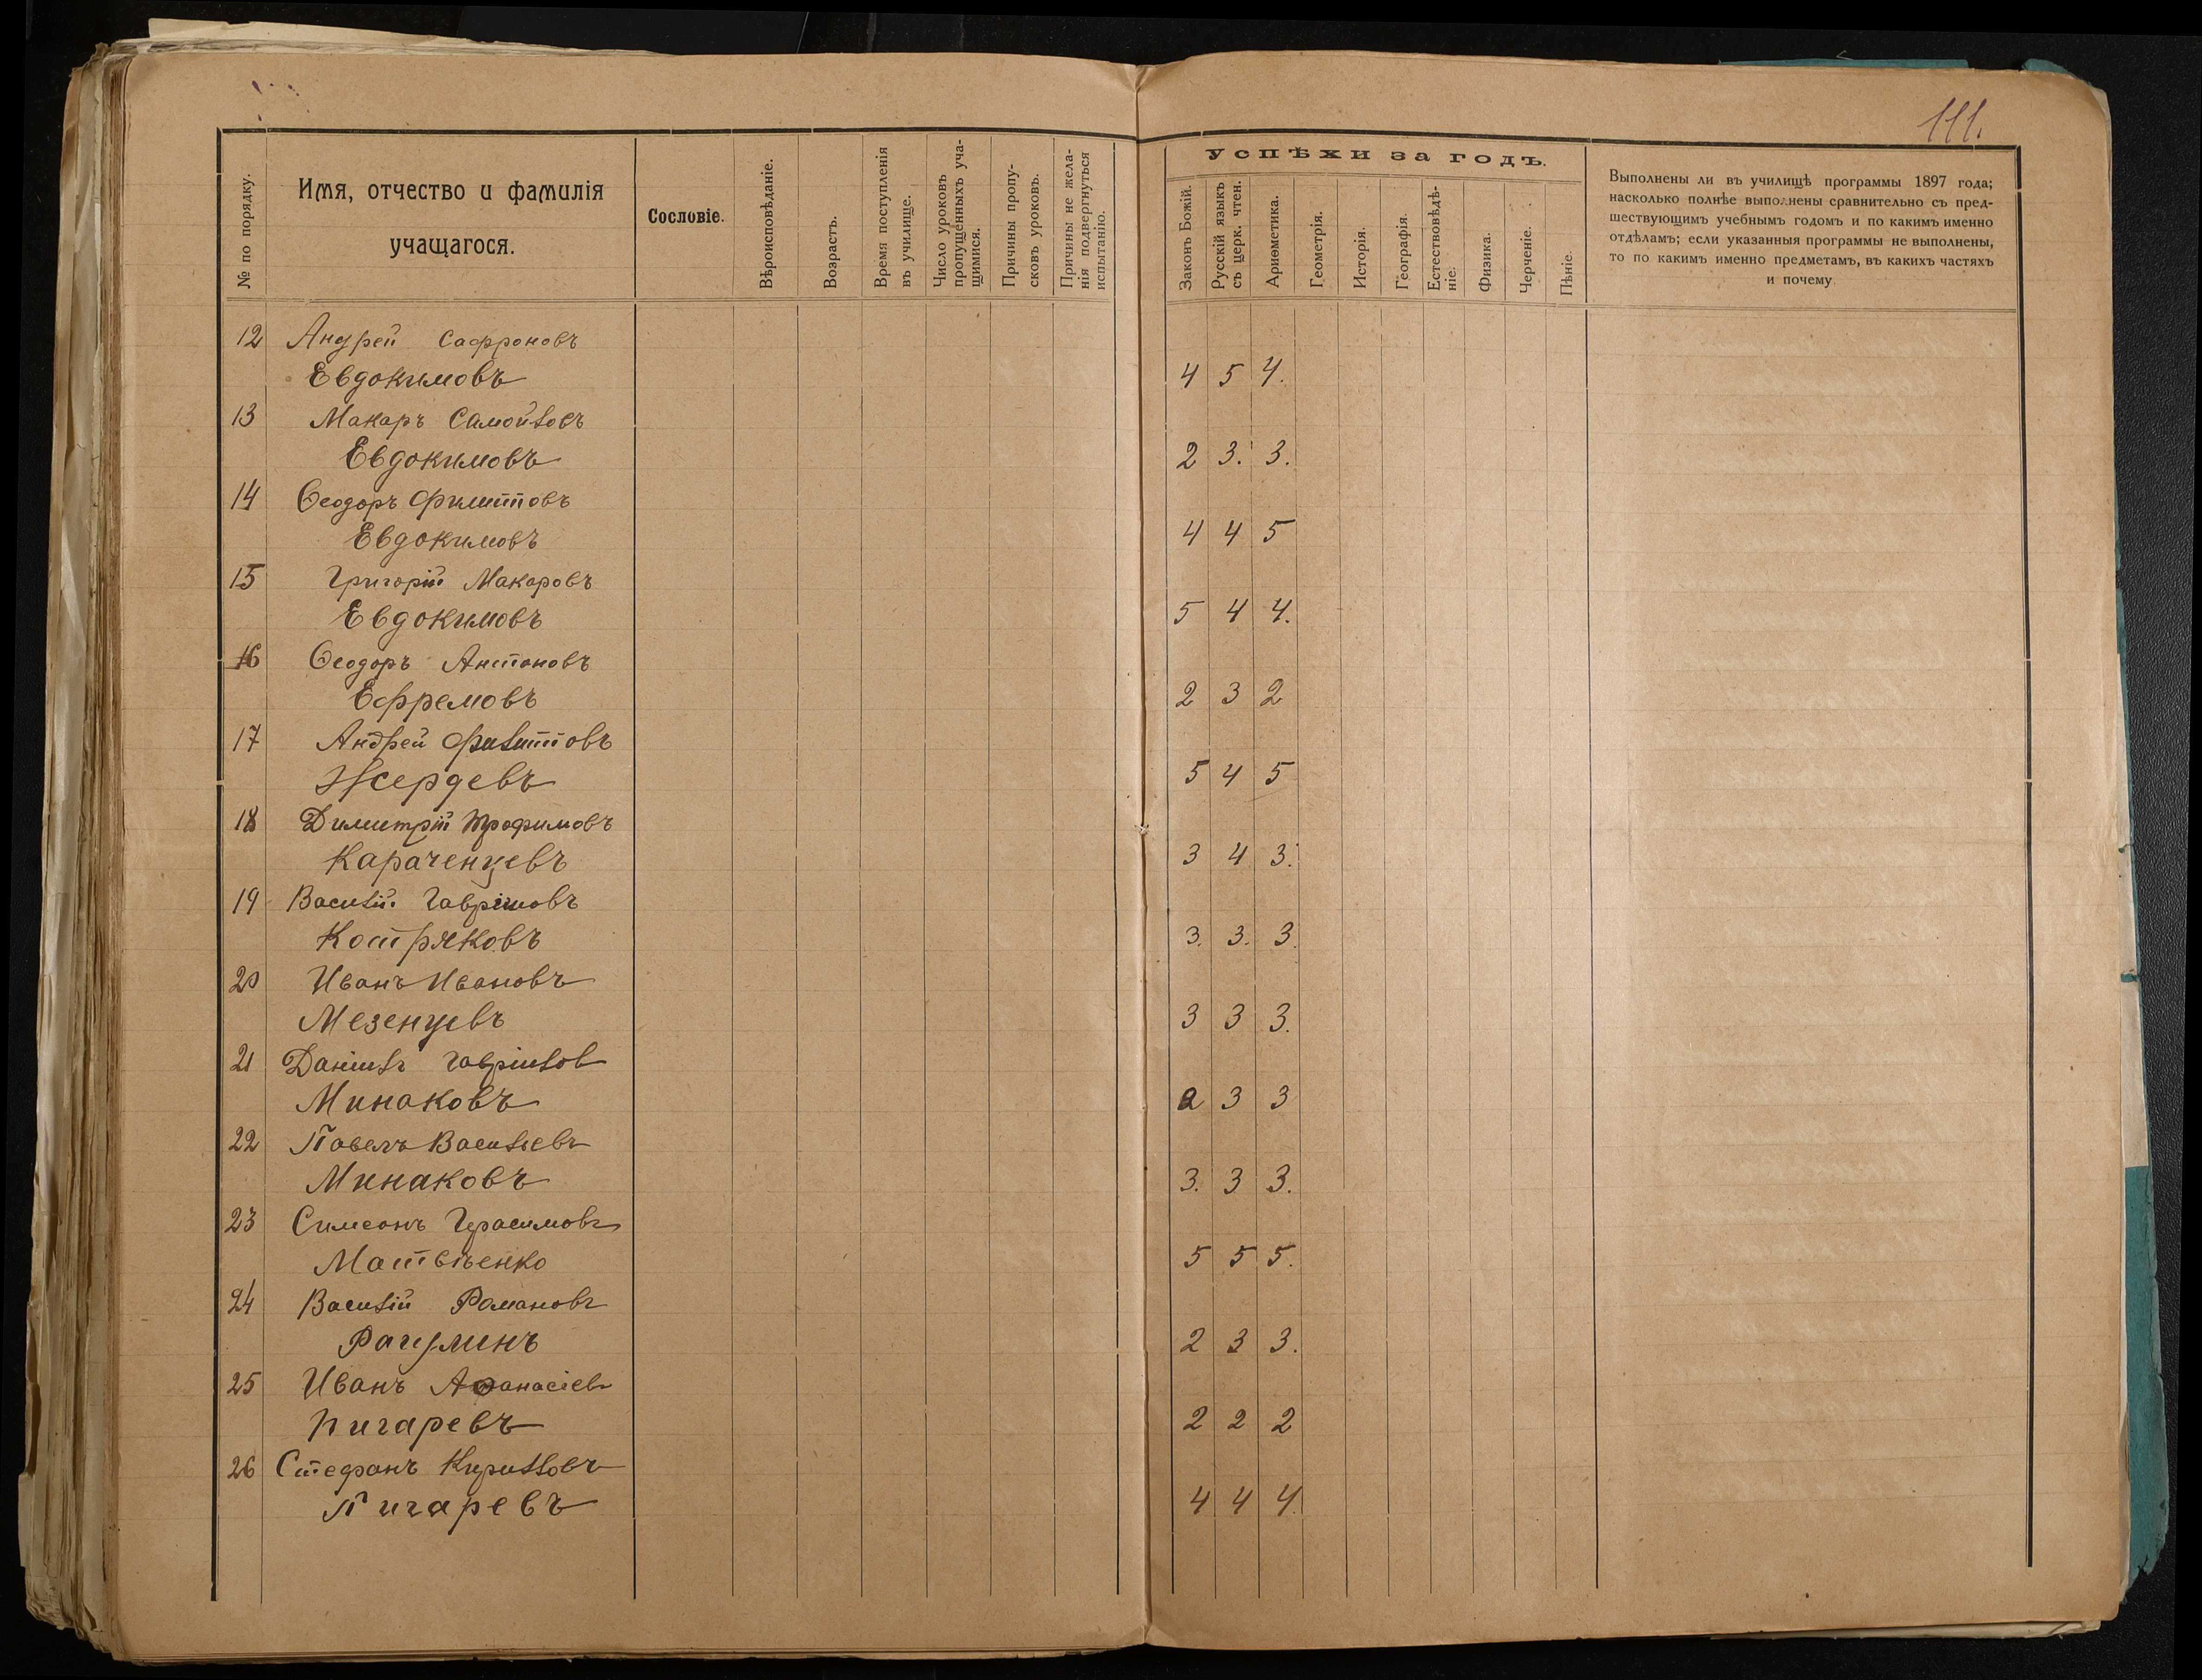 111.
№ по порядку.
Имя, отчество и фамилія
учащагося.
Сословіе.
Вѣроисповѣданіе.
Возрастъ.
Время поступленія
въ училище.
Число уроковъ
пропущенныхъ уча-
щимися.
Причины пропу-
сковъ уроковъ.
Причины не жела-
нія подвергнуться
испытанію.
Успѣхи за годъ.
Законъ Божій.
Русскій языкъ
съ церк. чтен.
Ариѳметика.
Геометрія.
Исторія.
Географія.
Естествовѣдѣ-
ніе.
Физика.
Черченіе.
Пѣніе.
Выполнены ли въ училищѣ программы 1897 года;
насколько полнѣе выполнены сравнительно съ пред-
шествующимъ учебнымъ годомъ и по какимъ именно
отдѣламъ; если указанныя программы не выполнены,
то по какимъ именно предметамъ, въ какихъ частяхъ
и почему.
12 Андрей Сафроновъ
Евдокимовъ 4 5 4.
13 Макаръ Самойловъ
Евдокимовъ 2 3. 3.
14 Ѳеодоръ Филипповъ
Евдокимовъ 4 4 5
15 Григорій Макаровъ
Евдокимовъ 5 4 4.
16 Ѳеодоръ Антоновъ
Ефремовъ 2 3 2
17 Андрей Филипповъ
Жердевъ 5 4 5
18 Димитрій Трофимовъ
Караченцевъ 3 4 3.
19 Василій Гавріиловъ
Костряковъ 3. 3. 3.
20 Иванъ Ивановъ
Мезенцевъ 3 3 3.
21 Даніилъ Гавріилов
Минаковъ 2 3 3
22 Павелъ Васильевъ
Минаковъ 3. 3 3.
23 Симеонъ Герасимовъ
Матвѣенко 5 5 5.
24 Василій Романовъ
Рагулинъ 2 3 3.
25 Иванъ Аѳанасіевъ
Пигаревъ 2 2 2
26 Стефанъ Кирилловъ
Пигаревъ 4 4 4.